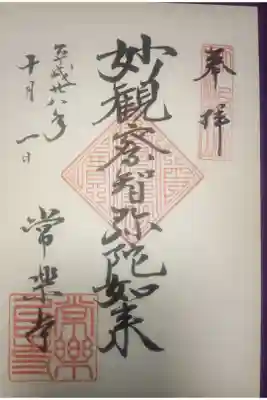 奉拝
妙観察智弥陀如来
平成廿八年
十月一日
常楽寺
常樂